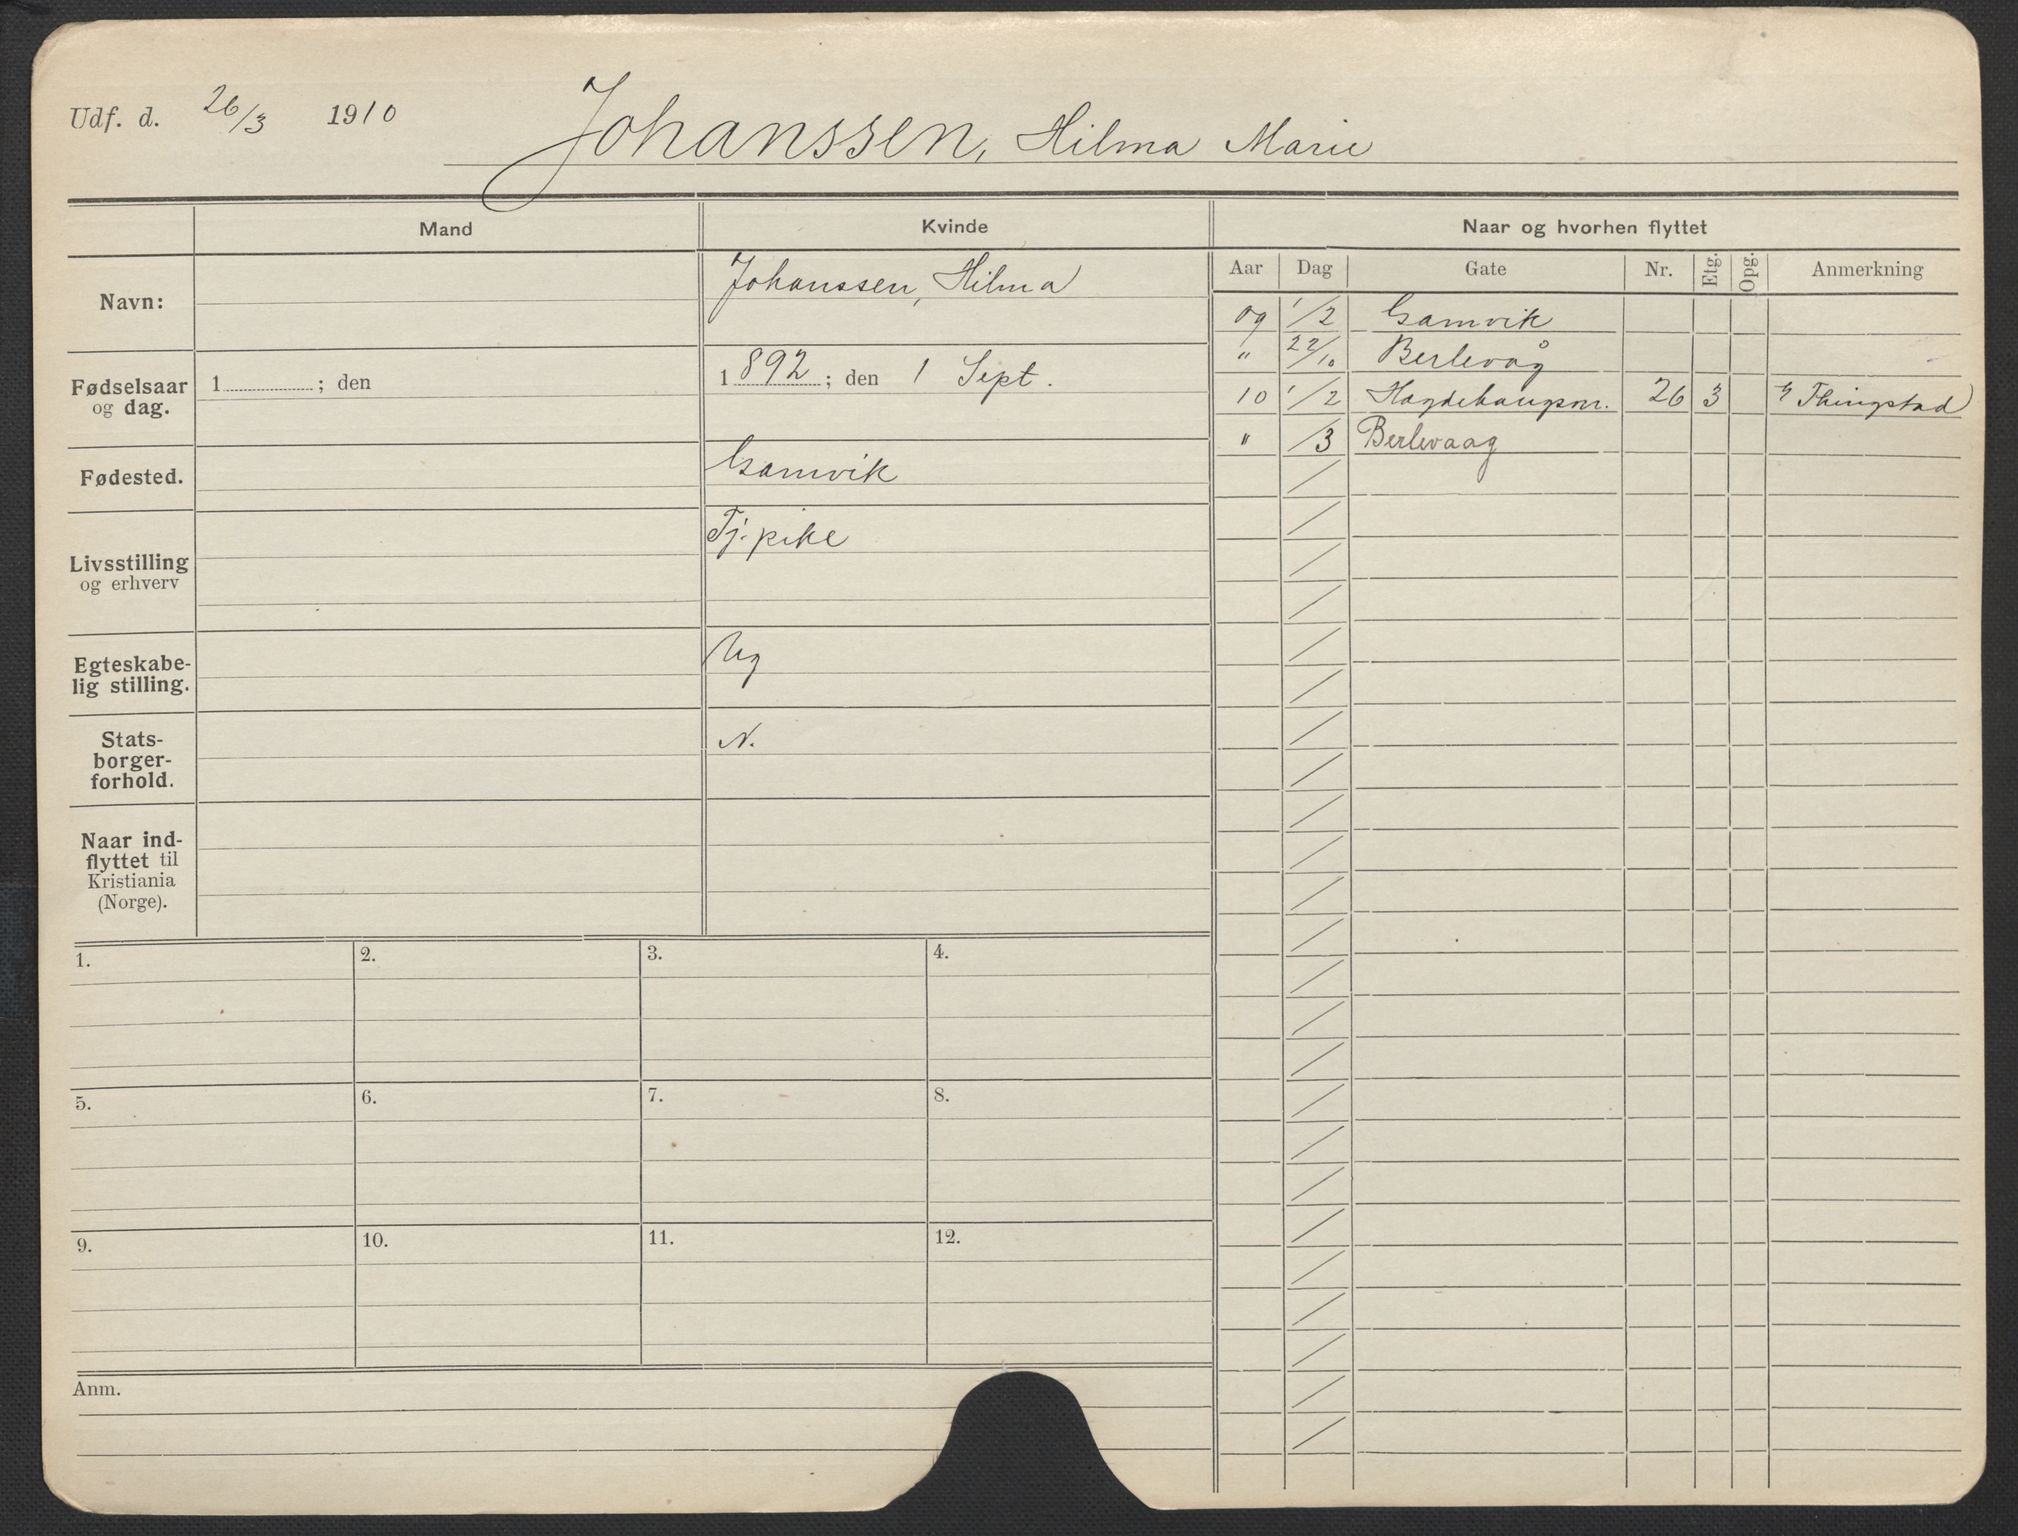 Udf. d. 26/3 1910 Johanssen, Hilma Marie
Mand Kvinde Naar og hvorhen flyttet
Navn: Johanssen, Hilma
Fødselsaar og dag. 1 ; den 1 892 ; den 1 Sept.
Fødested. Gamvik
Livsstilling og erhverv Tj. pike
Egteskabe-
lig stilling. Ug
Stats-
borger-
forhold. N.
Naar ind-
flyttet til
Kristiania
(Norge).
Aar Dag Gate Nr. Etg. Opg. Anmerkning
09 1/2 Gamvik
" 22/10 Berlevåg
10 1/2 Hægdehaugsv. 26 3 Thingstad
" /3 Berlevaag
1. 2. 3. 4.
5. 6. 7. 8.
9. 10. 11. 12.
Anm.